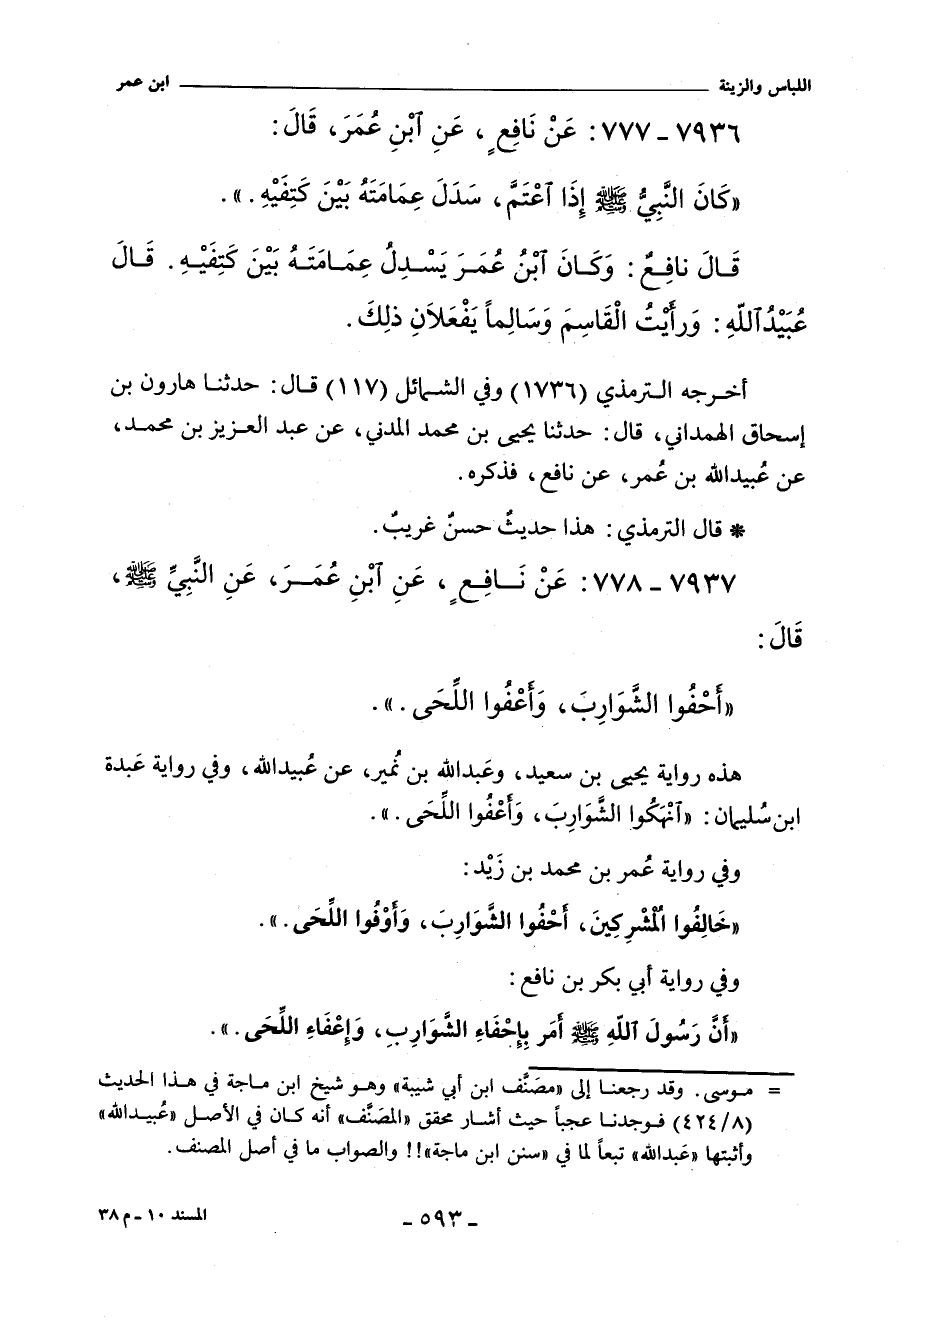 اللباس والزينة ابن عمر
٧٩٣٦ - ٧٧٧ : عَنْ نَافِعٍ ، عَنِ ٱبْنِ عُمَرَ، قَالَ:
«كَانَ النَّبِيُّ ﷺ إِذَا ٱعْتَمَّ، سَدَلَ عِمَامَتَهُ بَيْنَ كَتِفَيْهِ.».
قَـالَ نافِعٌ : وَكَـانَ ٱبْنُ عُمَـرَ يَسْـدِلُ عِمَـامَتَـهُ بَيْنَ كَتِفَيْـهِ. قَـالَ
عُبَيْدُٱللّٰهِ: وَرأَيْتُ الْقَاسِمَ وَسَالِماً يَفْعَلاَنِ ذلِكَ.
أخـرجه الـترمذي (١٧٣٦) وفي الشمائل (١١٧) قـال: حدثنـا هارون بن
إسحاق الهمداني، قال: حدثنا يحيى بن محمد المدني، عن عبد العـزيز بن محمـد،
عن عُبيدالله بن عُمر، عن نافع، فذكره.
* قال الترمذي: هذا حديثٌ حسنٌ غريبٌ.
٧٩٣٧ - ٧٧٨ : عَنْ نَـافِـعٍ ، عَنِ ٱبْنِ عُمَـرَ، عَنِ النَّبِيِّ ﷺ،
قَالَ:
«أَحْفُوا الشَّوَارِبَ، وَأَعْفُوا اللِّحَى.».
هذه رواية يحيى بن سعيد، وعَبدالله بن نُمير، عن عُبيدالله، وفي رواية عَبدة
ابن سُليمان: «ٱنْهَكُوا الشَّوَارِبَ، وَأَعْفُوا اللِّحَى.».
وفي رواية عُمر بن محمد بن زَيْد:
«خَالِفُوا الْمُشْرِكِينَ، أَحْفُوا الشَّوَارِبَ، وَأَوْفُوا اللِّحَى.».
وفي رواية أبي بكر بن نافع:
«أَنَّ رَسُولَ ٱللّٰهِ ﷺ أَمَر بِإِحْفَاءِ الشَّوَارِبِ، وَإِعْفَاءِ اللِّحَى.».
= مـوسى. وقد رجعنـا إلى «مصَنَّف ابن أبي شيبة» وهـو شيخ ابن مـاجة في هـذا الحديث
(٤٢٤/٨) فـوجدنـا عجباً حيث أشـار محقق «المصَنَّف» أنه كـان في الأصـل «عُبيـدالله»
وأثبتها «عَبدالله» تبعاً لما في «سنن ابن ماجة»!! والصواب ما في أصل المصنف.
المسند ١٠ - م ٣٨ - ٥٩٣ -